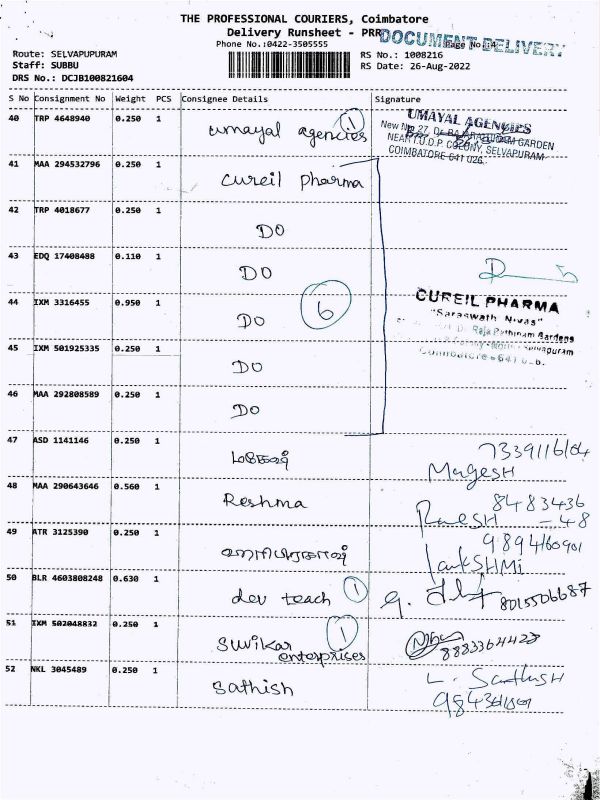 THE PROFESSIONAL COURIERS, Coimbatore
Delivery Runsheet - PRP
DOCUMENT DELIVERY
Phone No.:0422-3505555
Page No.:4
Route: SELVAPUPURAM
RS No.: 1008216
Staff: SUBBU
RS Date: 26-Aug-2022
DRS No.: DCJB100821604
S No Consignment No Weight PCS Consignee Details Signature
40 TRP 4648940 0.250 1 umayal agencies 1
UMAYAL AGENCIES
New No. 27, Dr. RAJARATHINAM GARDEN
NEAR T.U.D.P. COLONY, SELVAPURAM
COIMBATORE 641 026.
41 MAA 294532796 0.250 1 Cureil pharma
42 TRP 4018677 0.250 1 DO
43 EDQ 17408488 0.110 1 DO
44 IXM 3316455 0.950 1 DO 6
CUREIL PHARMA
"Saraswath Nivas"
Dr. Raja Rathinam Gardens
Selvapuram
Coimbatore - 641 026.
45 IXM 501925335 0.250 1 DO
46 MAA 292808589 0.250 1 DO
47 ASD 1141146 0.250 1 மகேஷ் 7339116104
MageSH
48 MAA 290643646 0.560 1 Reshma 8483436
RameSH - 48
49 ATR 3125390 0.250 1 9894160901
LankSHMi
50 BLR 4603808248 0.630 1 dev teach 1 8015506687
51 IXM 502048832 0.250 1 Suvikar 1
enterprises 8883364428
52 NKL 3045489 0.250 1 Sathish L. SanthosH